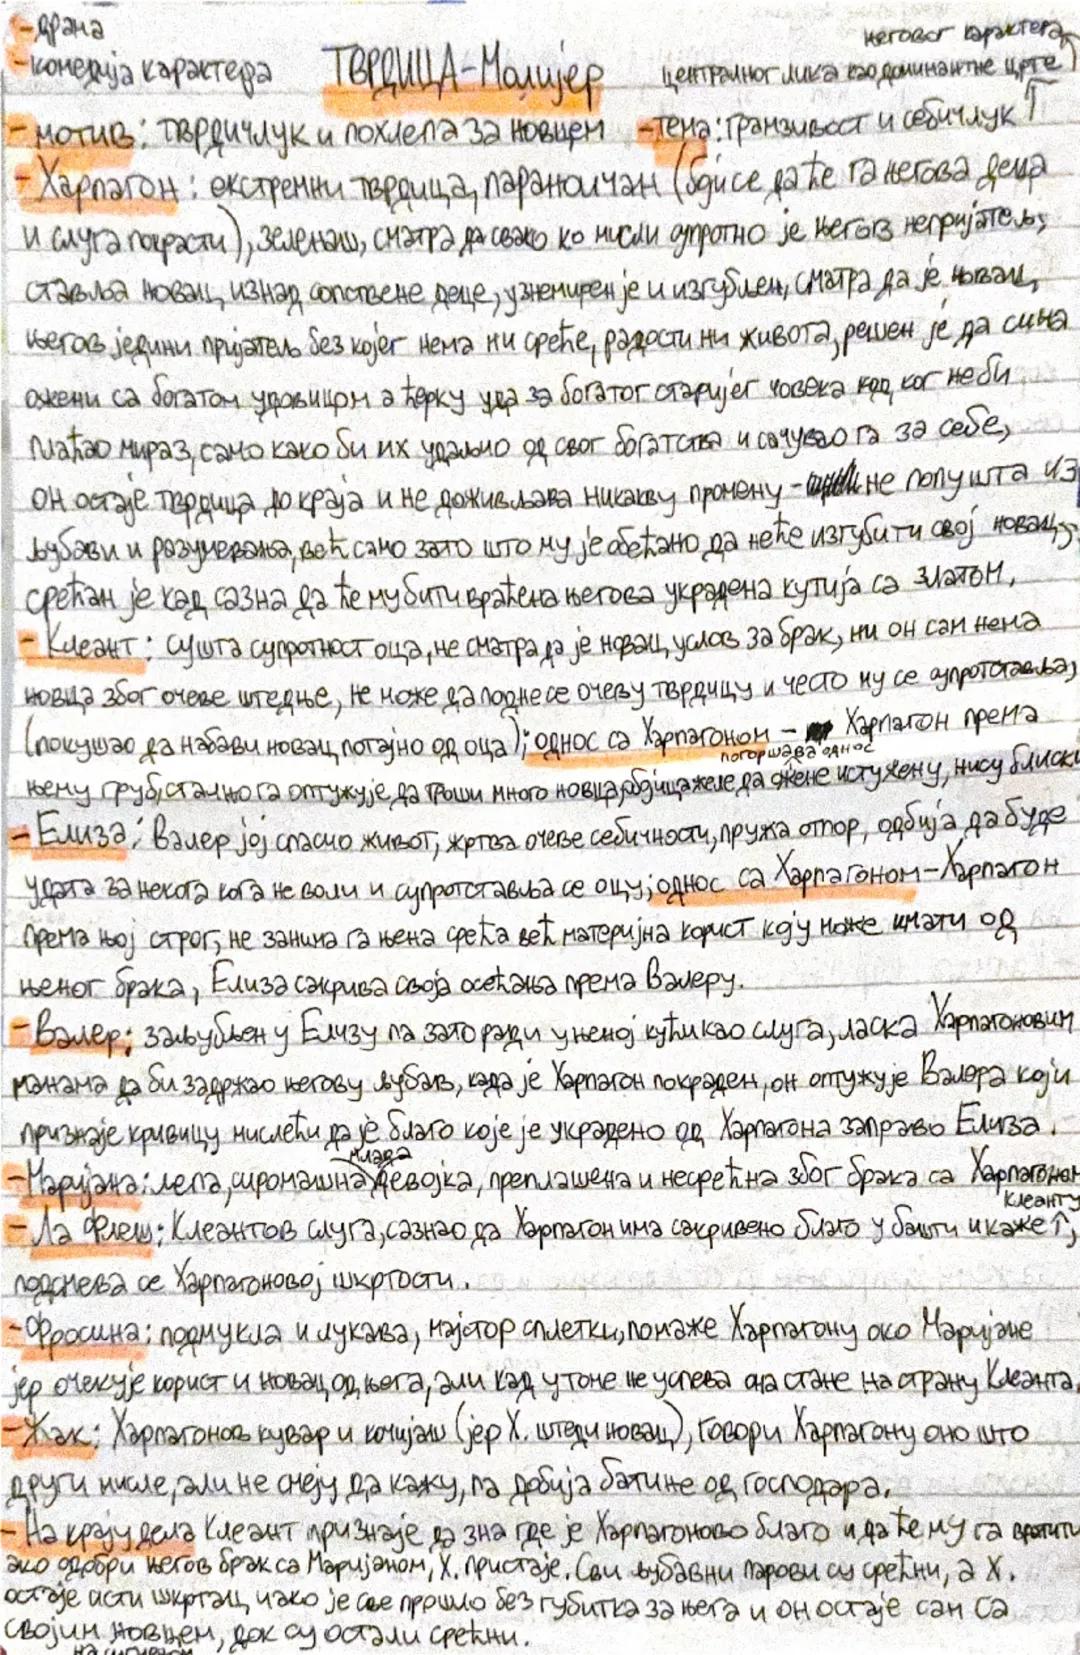 -драма
његовог карактера
-комедија карактера ТВРДИЦА-Молијер централног лика као доминантне црте
- мотив: тврдичлук и похлепа за новцем -тема: грамзивост и себичлук ↑
- Харпагон: екстремни тврдица, параноичан (боји се да ће га његова деца
и слуга покрасти), зеленаш, сматра да свако ко мисли супротно је његов непријатељ,
ставља новац изнад сопствене деце, узнемирен је и изгубљен, сматра да је новац
његов једини пријатељ без којег нема ни среће, радости ни живота, решен је да сина
ожени са богатом удовицом а ћерку уда за богатог старијег човека код ког не би
плаћао мираз, само како би их удаљио од свог богатства и сачувао га за себе,
он остаје тврдица до краја и не доживљава никакву промену - не попушта из
љубави и разумевања, већ само зато што му је обећано да неће изгубити свој новац,
срећан је кад сазна да ће му бити враћена његова украдена кутија са златом.
- Клеант: сушта супротност оца, не сматра да је новац услов за брак, ни он сам нема
новца због очеве штедње, не може да поднесе очеву тврдицу и често му се супротставља,
(покушао да набави новац потајно од оца); однос са Харпагоном - Харпагон према
погоршава однос
њему груб, стално га оптужује да троши много новца, обојица желе да ожене исту жену, нису блиски
- Елиза: Валер јој спасио живот, жртва очеве себичности, пружа отпор, одбија да буде
удата за некога кога не воли и супротставља се оцу; однос са Харпагоном-Харпагон
према њој строг, не занима га њена срећа већ материјна корист коју може имати од
њеног брака, Елиза сакрива своја осећања према Валеру.
- Валер: заљубљен у Елизу па зато ради у њеној кући као слуга, ласка Харпагоновим
манама да би задржао његову љубав, када је Харпагон покраден, он оптужује Валера који
признаје кривицу мислећи да је благо које је украдено од Харпагона заправо Елиза.
млада
- Маријана: лепа, сиромашна девојка, преплашена и несрећна због брака са Харпагоном
Клеанту
- Ла Флеш: Клеантов слуга, сазнао да Харпагон има сакривено благо у башти и каже ↑,
подсмева се Харпагоновој шкртости.
- Фросина: подмукла и лукава, мајстор сплетки, помаже Харпагону око Маријане
јер очекује корист и новац од њега, али кад у томе не успева она стане на страну Клеанта.
- Жак: Харпагонов кувар и кочијаш (јер Х. штеди новац), говори Харпагону оно што
други мисле, али не смеју да кажу, па добија батине од господара.
- На крају дела Клеант признаје да зна где је Харпагоново благо и да ће му га вратити
ако одобри његов брак са Маријаном, Х. пристаје. Сви љубавни парови су срећни, а Х.
остаје исти шкртац иако је све прошло без губитка за њега и он остаје сам са
својим новцем, док су остали срећни.